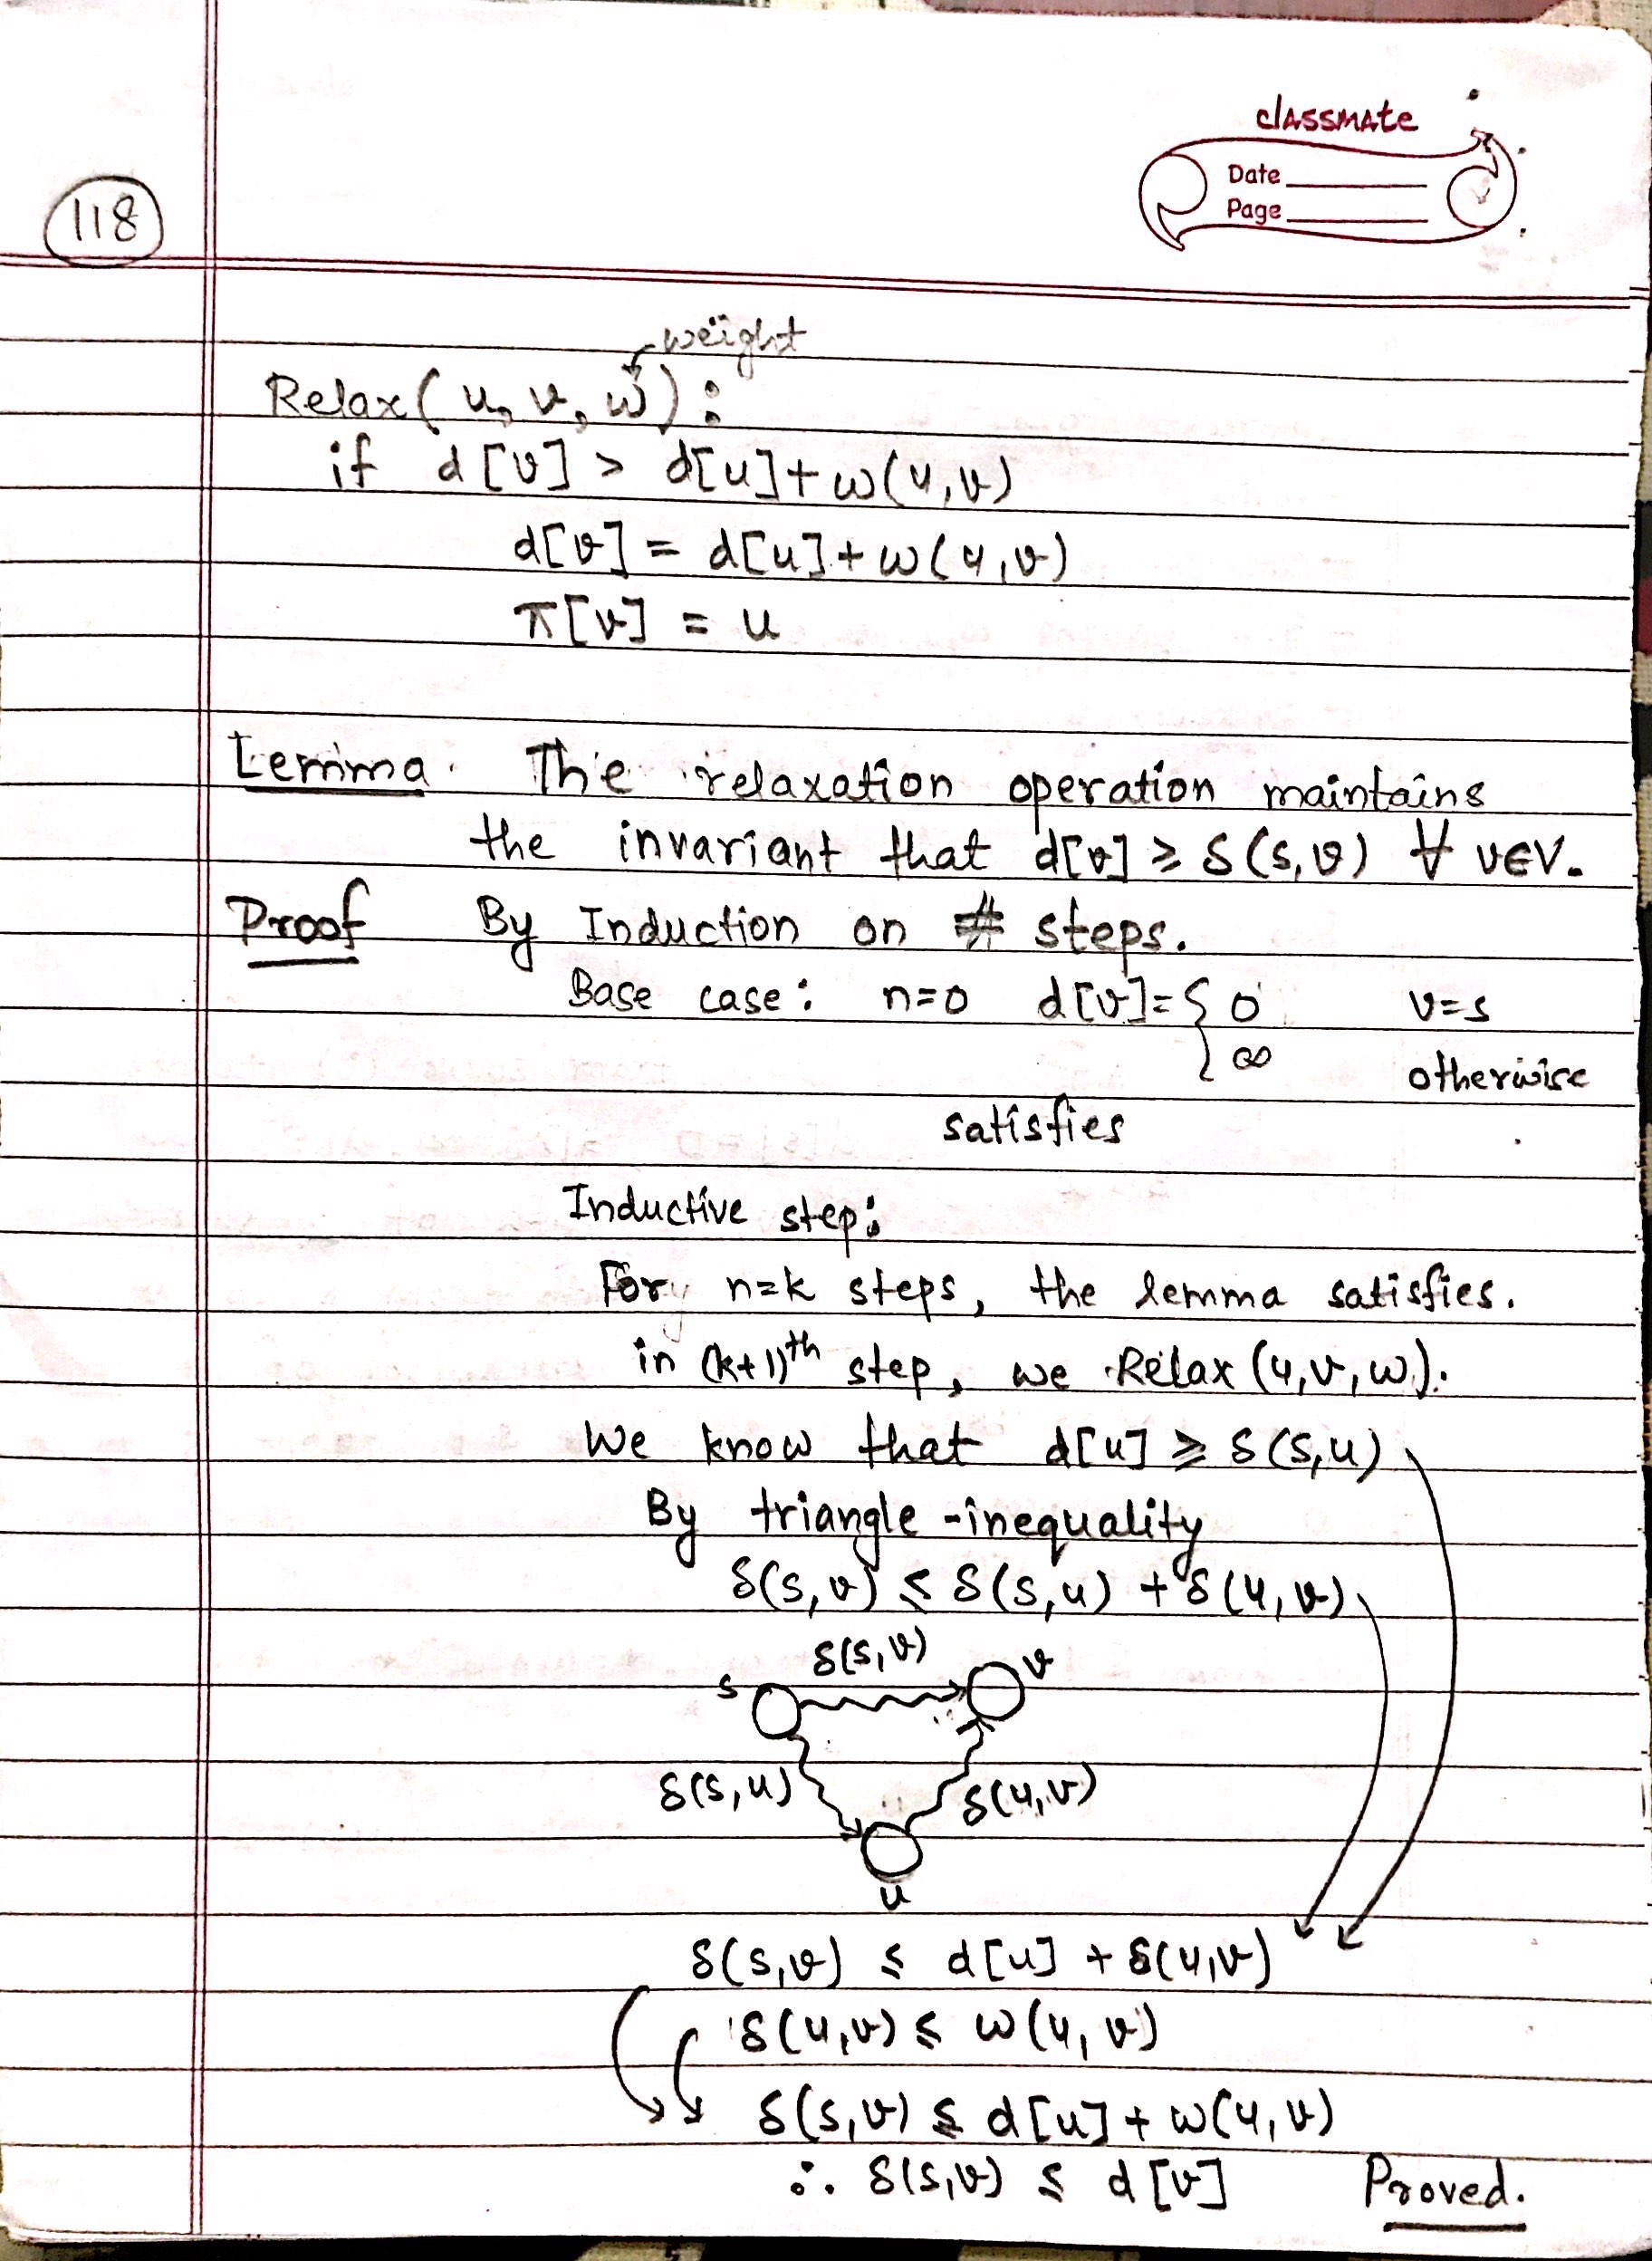 classmate
Date
Page
118
weight
Relax(u, v, w):
if d[v] > d[u]+w(u,v)
d[v] = d[u]+w(u,v)
π[v] = u
Lemma. The relaxation operation maintains
the invariant that d[v] ≥ δ(s,v) ∀ v∈V.
Proof By Induction on # steps.
Base case: n=0 d[v]={ 0 v=s
∞ otherwise
satisfies
Inductive step:
For n=k steps, the lemma satisfies.
in (k+1)th step, we Relax (u,v,w).
We know that d[u] ≥ δ(s,u)
By triangle-inequality
δ(s,v) ≤ δ(s,u) + δ(u,v)
δ(s,v)
s v
δ(s,u) δ(u,v)
u
δ(s,v) ≤ d[u] + δ(u,v)
δ(u,v) ≤ w(u,v)
δ(s,v) ≤ d[u] + w(u,v)
∴ δ(s,v) ≤ d[v] Proved.